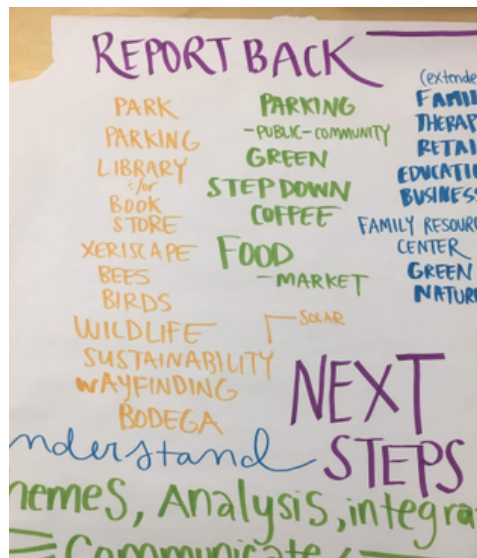 REPORT BACK
PARK
PARKING
LIBRARY
&/or
BOOK
STORE
XERISCAPE
BEES
BIRDS
WILDLIFE
SOLAR
SUSTAINABILITY
WAYFINDING
BODEGA
PARKING
-PUBLIC-COMMUNITY
GREEN
STEP DOWN
COFFEE
FOOD
-MARKET
(extende
FAMIL
THERAP
RETAI
EDUCATI
BUSINESS
FAMILY RESOUR
CENTER
GREEN
NATUR
NEXT
STEPS
nderstand
hemes, Analysis, integra
Communicate